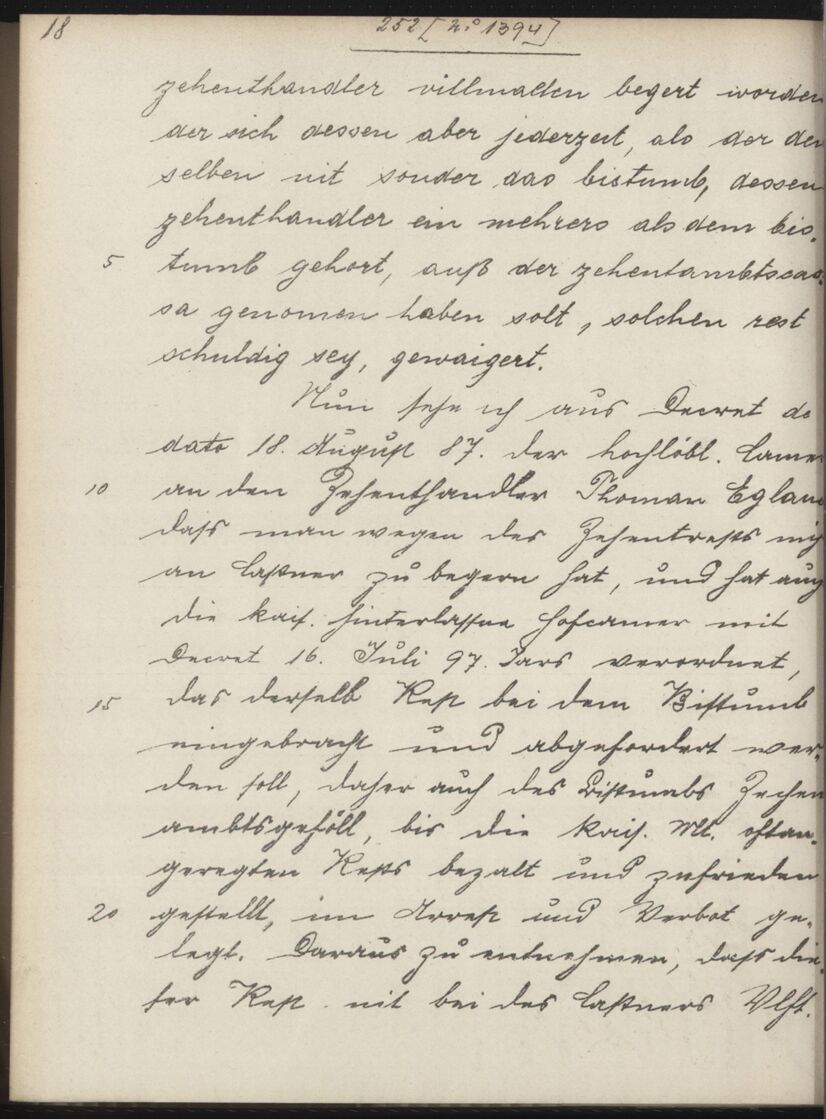 18
252 [No 1394]
zehenthandler villmallen begert worden
der sich dessen aber jederzeit, als der der
selben nit sonder das bistumb, dessen
zehenthandler ein mehrers als dem bis-
5 tumb gehort, auß der zehentambtscas-
sa genomen haben solt, solchen rest
schuldig sey, gewaigert.
Nun sehe ich aus Decret de
dato 18. August 87. der hochlöbl. Camer
10 an den Zehenthandler Thoman
dass man wegen des Zehentrests
an Castner zu begern hat, und hat auch
die kais. hinterlassne Hofcamer mit
Decret 16. Juli 97. Jars verordnet,
15 das derselb Rest bei dem Bistumb
eingebracht und abgefordert wer-
den soll, daher auch des Bistumbs Zehen
ambtsgeföll, bis die kais. Mt. oftan-
geregten Rests bezalt und zufrieden
20 gestellt, im Arrest und Verbot ge-
legt. Daraus zu entnehmen, dass die-
ser Rest nit bei des Castners